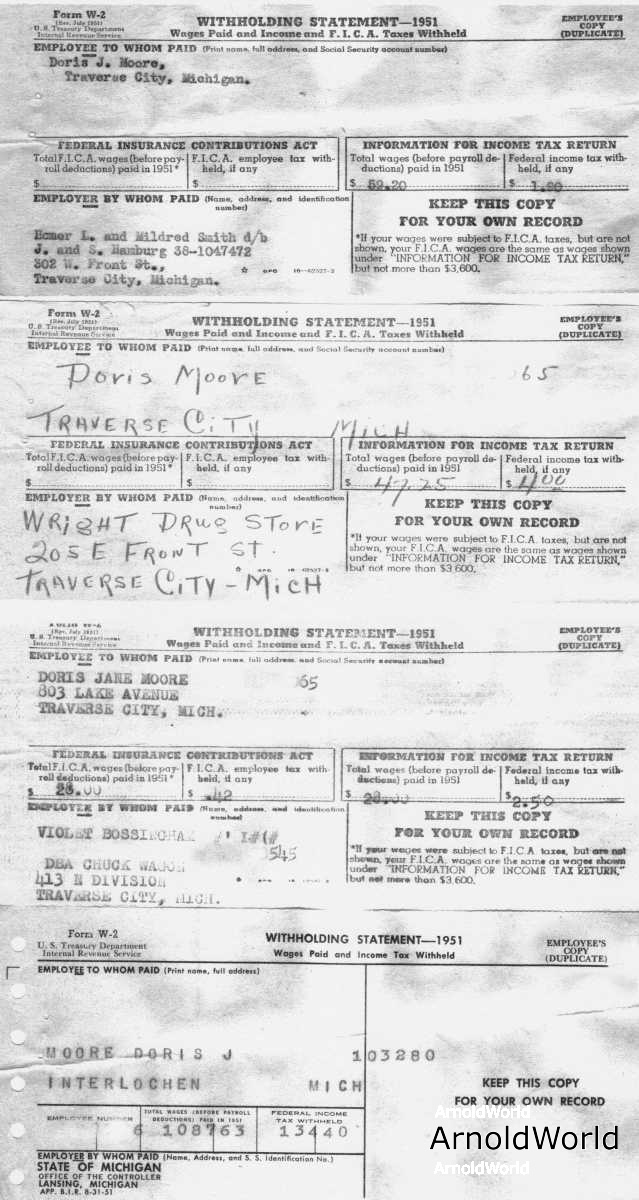 Form W-2
(Rev. July 1951)
U. S. Treasury Department
Internal Revenue Service
WITHHOLDING STATEMENT—1951
Wages Paid and Income and F. I. C. A. Taxes Withheld
EMPLOYEE'S
COPY
(DUPLICATE)
EMPLOYEE TO WHOM PAID (Print name, full address, and Social Security account number)
Doris J. Moore,
Traverse City, Michigan.
FEDERAL INSURANCE CONTRIBUTIONS ACT
Total F.I.C.A. wages (before pay-
roll deductions) paid in 1951*
F.I.C.A. employee tax with-
held, if any
$
$
INFORMATION FOR INCOME TAX RETURN
Total wages (before payroll de-
ductions) paid in 1951
Federal income tax withheld,
if any
$ 59.20
$
EMPLOYER BY WHOM PAID (Name, address, and identification
number)
Homer L. and Mildred Smith d/b
J. and S. Hamburg 38-1047472
302 W. Front St.,
Traverse City, Michigan.
KEEP THIS COPY
FOR YOUR OWN RECORD
*If your wages were subject to F.I.C.A. taxes, but are not
shown, your F.I.C.A. wages are the same as wages shown
under "INFORMATION FOR INCOME TAX RETURN,"
but not more than $3,600.
Form W-2
(Rev. July 1951)
U. S. Treasury Department
Internal Revenue Service
WITHHOLDING STATEMENT—1951
Wages Paid and Income and F. I. C. A. Taxes Withheld
EMPLOYEE'S
COPY
(DUPLICATE)
EMPLOYEE TO WHOM PAID (Print name, full address, and Social Security account number)
Doris Moore
65
TRAVERSE CITY MICH
FEDERAL INSURANCE CONTRIBUTIONS ACT
Total F.I.C.A. wages (before pay-
roll deductions) paid in 1951*
F.I.C.A. employee tax with-
held, if any
$
$
INFORMATION FOR INCOME TAX RETURN
Total wages (before payroll de-
ductions) paid in 1951
Federal income tax with-
held, if any
$ 47.25
$ 4.00
EMPLOYER BY WHOM PAID (Name, address, and identification
number)
WRIGHT DRUG STORE
205 E FRONT ST.
TRAVERSE CITY - MICH
KEEP THIS COPY
FOR YOUR OWN RECORD
*If your wages were subject to F.I.C.A. taxes, but are not
shown, your F.I.C.A. wages are the same as wages shown
under "INFORMATION FOR INCOME TAX RETURN,"
but not more than $3,600.
(Rev. July 1951)
U. S. Treasury Department
Internal Revenue Service
WITHHOLDING STATEMENT—1951
Wages Paid and Income and F. I. C. A. Taxes Withheld
EMPLOYEE'S
COPY
(DUPLICATE)
EMPLOYEE TO WHOM PAID (Print name, full address, and Social Security account number)
DORIS JANE MOORE 65
803 LAKE AVENUE
TRAVERSE CITY, MICH.
FEDERAL INSURANCE CONTRIBUTIONS ACT
Total F.I.C.A. wages (before pay-
roll deductions) paid in 1951*
F.I.C.A. employee tax with-
held, if any
$ 28.00
$ .42
INFORMATION FOR INCOME TAX RETURN
Total wages (before payroll de-
ductions) paid in 1951
Federal income tax with-
held, if any
$ 28.00
$ 2.50
EMPLOYER BY WHOM PAID (Name, address, and identification
number)
VIOLET
545
DBA CHUCK WAGON
413 N DIVISION
TRAVERSE CITY, MICH.
KEEP THIS COPY
FOR YOUR OWN RECORD
*If your wages were subject to F.I.C.A. taxes, but are not
shown, your F.I.C.A. wages are the same as wages shown
under "INFORMATION FOR INCOME TAX RETURN,"
but not more than $3,600.
Form W-2
U. S. Treasury Department
Internal Revenue Service
WITHHOLDING STATEMENT—1951
Wages Paid and Income Tax Withheld
EMPLOYEE'S
COPY
(DUPLICATE)
EMPLOYEE TO WHOM PAID (Print name, full address)
MOORE DORIS J 103280
INTERLOCHEN MICH
KEEP THIS COPY
FOR YOUR OWN RECORD
EMPLOYEE NUMBER
TOTAL WAGES (BEFORE PAYROLL
DEDUCTIONS) PAID IN 1951
FEDERAL INCOME
TAX WITHHELD
6 108763 13440
EMPLOYER BY WHOM PAID (Name, Address, and S. S. Identification No.)
STATE OF MICHIGAN
OFFICE OF THE CONTROLLER
LANSING, MICHIGAN
APP. B.I.R. 8-31-51
ArnoldWorld
ArnoldWorld
ArnoldWorld